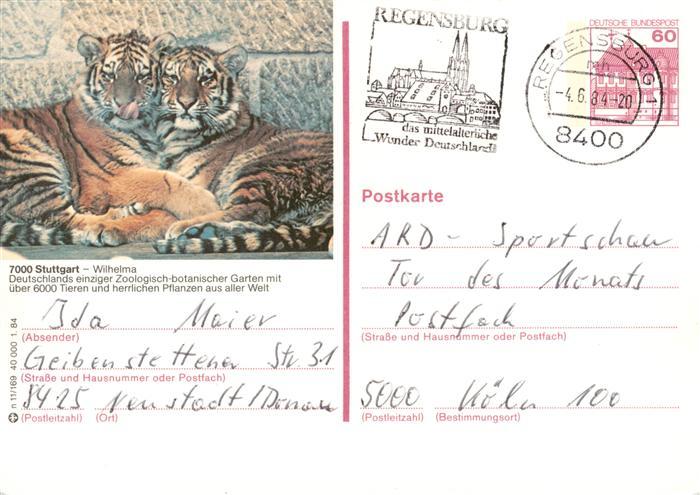 7000 Stuttgart – Wilhelma
Deutschlands einziger Zoologisch-botanischer Garten mit
über 6000 Tieren und herrlichen Pflanzen aus aller Welt
Ida Maier
(Absender)
Geibenstettener Str. 31
(Straße und Hausnummer oder Postfach)
8425 Neustadt/Donau
(Postleitzahl) (Ort)
n 11/169 40 000 1.84
REGENSBURG
das mittelalterliche
Wunder Deutschlands
REGENSBURG 1
-4.6.84-20
8400
DEUTSCHE BUNDESPOST
60
Postkarte
ARD - Sportschau
Tor des Monats
Postfach
(Straße und Hausnummer oder Postfach)
5000 Köln 100
(Postleitzahl) (Bestimmungsort)